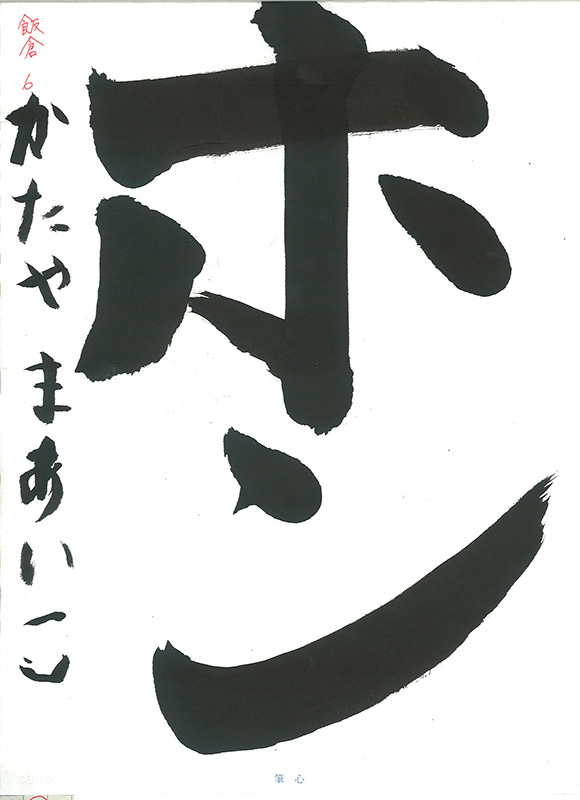 ホン
飯倉 6
かたやまあいこ
筆心